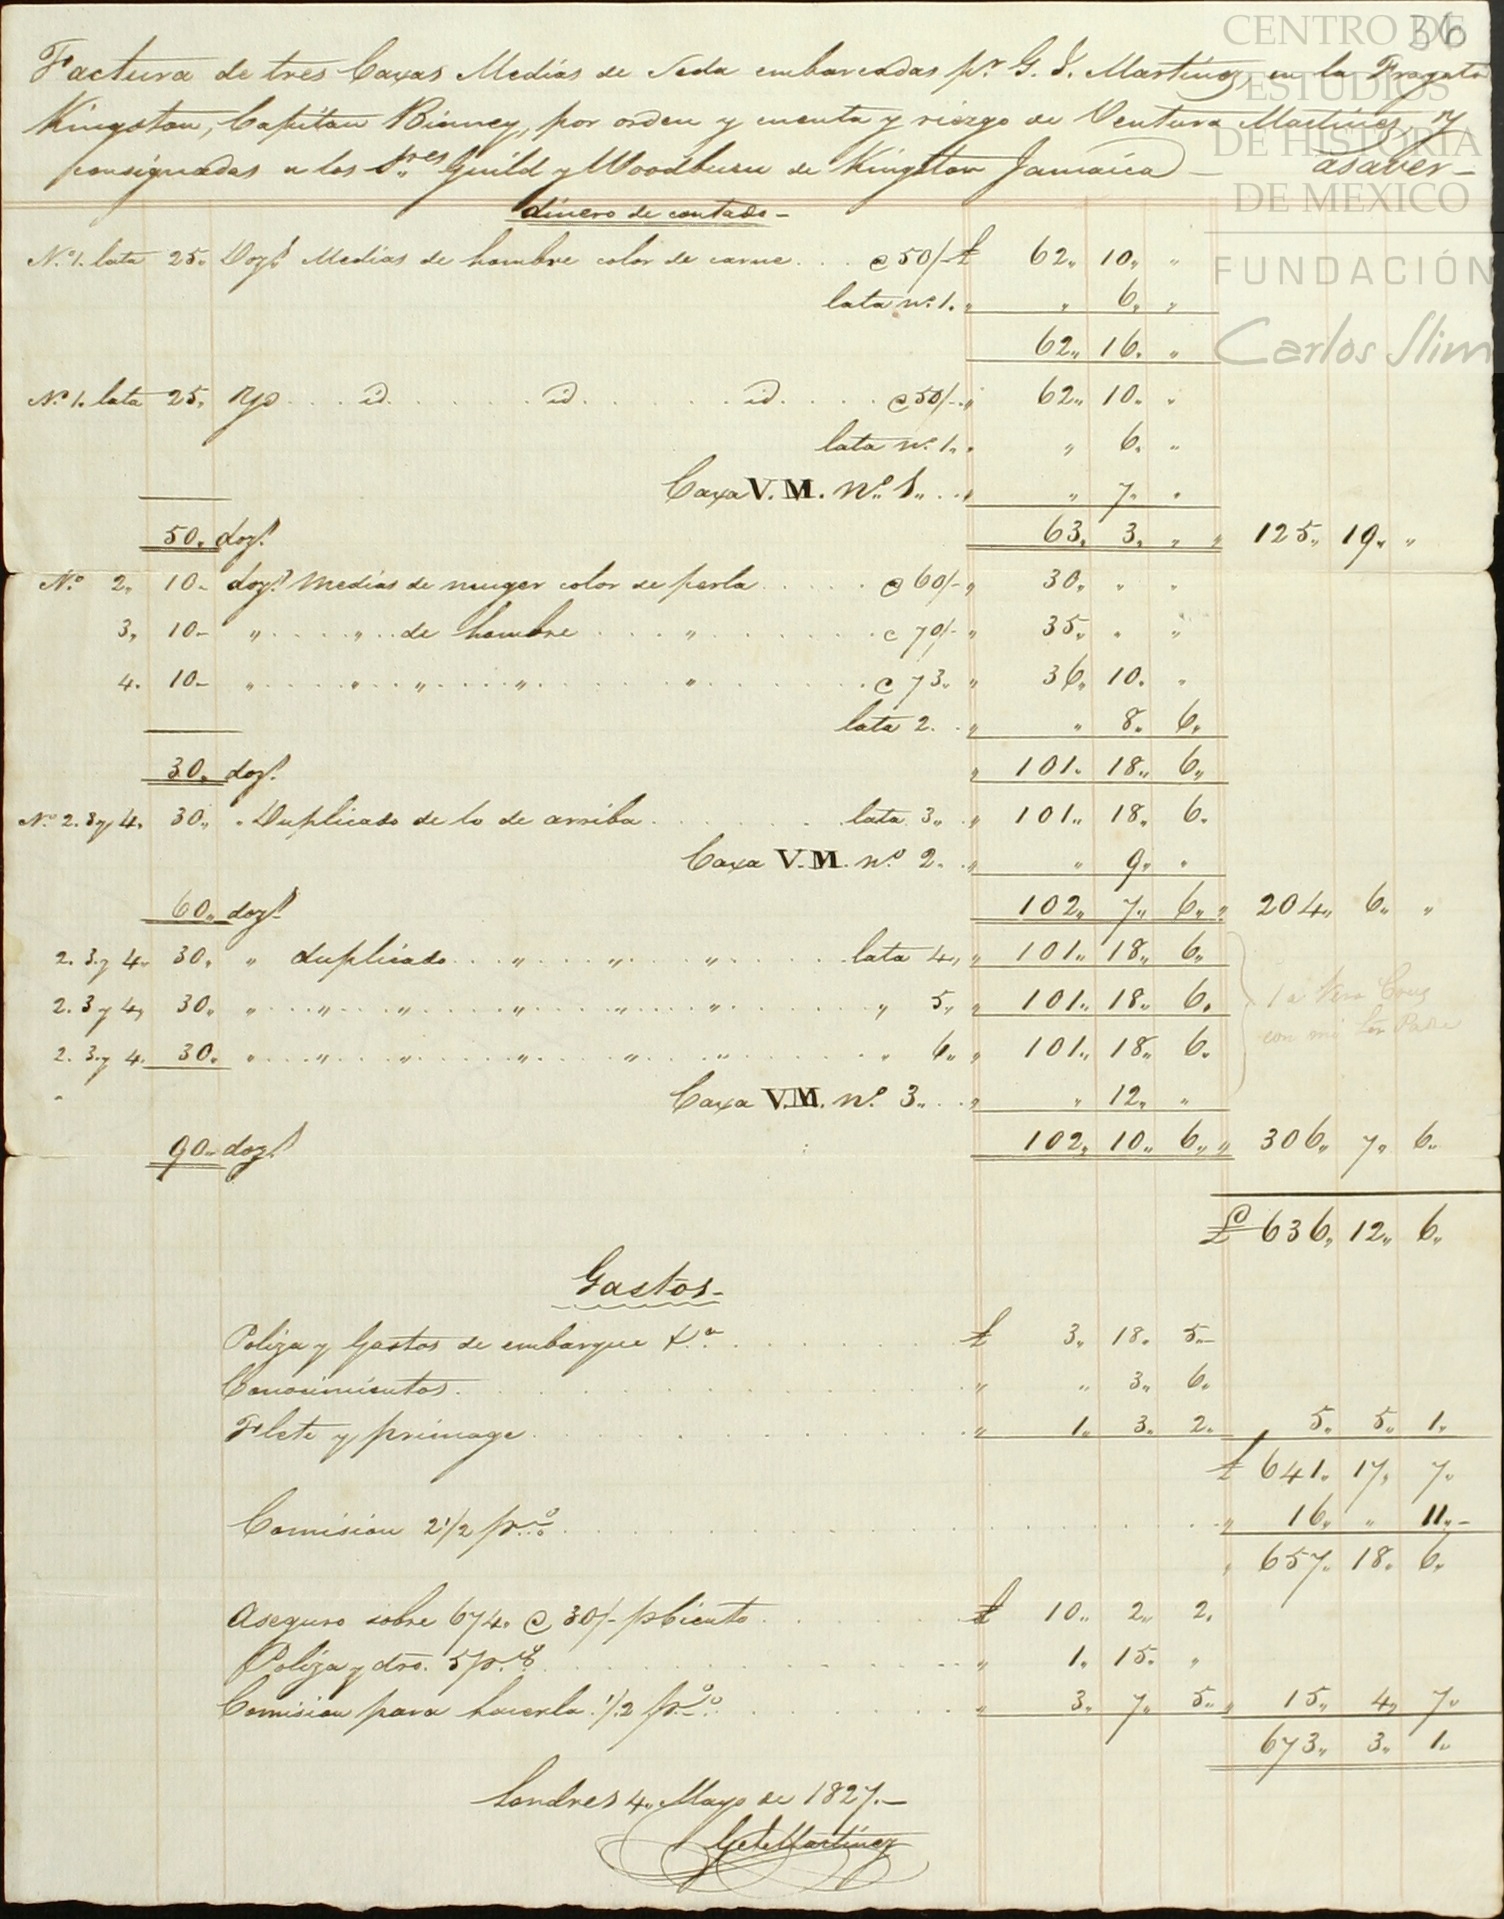 36
CENTRO DE
ESTUDIOS
DE HISTORIA
DE MEXICO
FUNDACIÓN
Carlos Slim
Factura de tres Caxas Medias de Seda embarcadas pr. G. S. Martinez, en la Fragata
Kingston, Capitan Binney, por orden y cuenta y riezgo de Ventura Martinez, y
consignadas a los Sres. Guild y Woodburn de Kingston Jamaica — asaver —
dinero de contado —
No. 1. lata 25„ Dozs. Medias de hombre color de carne . . . @ 50/- £ 62„ 10„ „
lata no. 1. „ „ 6„ „
62„ 16„ „
No. 1. lata 25„ id . . . id . . . id . . . @ 50/- „ 62„ 10„ „
lata no. 1„ „ „ 6„ „
Caxa V. M. no. 1„ . . „ „ 7„ „
50„ dozs. 63„ 3„ „ „ 125„ 19„ „
No. 2„ 10- dozs. Medias de muger color de perla . . . @ 60/- „ 30„ „ „
3„ 10- „ . . . „ . . de hombre . . . „ . . . @ 70/- „ 35„ „ „
4. 10- „ . . . „ . . „ . . . „ . . . „ . . . @ 73„ „ 36„ 10„ „
lata 2. . „ „ 8„ 6„
30„ dozs. „ 101„ 18„ 6„
No. 2. 3 y 4„ 30„ „ Duplicado de lo de arriba . . . lata 3„ . „ 101„ 18„ 6„
Caxa V. M. no. 2. . „ „ 9„ „
60„ dozs. 102„ 7„ 6„ „ 204„ 6„ „
2. 3. y 4„ 30„ „ duplicado . . . „ . . . „ . . . „ . . . lata 4„ „ 101„ 18„ 6„
2. 3 y 4„ 30„ „ . . . „ . . . „ . . . „ . . . „ . . . „ . . . „ 5„ „ 101„ 18„ 6„
1 a Vera Cruz
con mi Sor. Padre
2. 3. y 4. 30„ „ . . . „ . . . „ . . . „ . . . „ . . . „ . . . „ 6„ „ 101„ 18„ 6„
Caxa V. M. no. 3„ . . „ „ 12„ „
90„ dozs. 102„ 10„ 6„ „ 306„ 7„ 6„
£ 636„ 12„ 6„
Gastos —
Poliza y Gastos de embarque &a. . . . £ 3„ 18„ 5-
Conocimientos . . . „ „ 3„ 6„
Flete y primage . . . „ 1„ 3„ 2„ 5„ 5„ 1„
£ 641„ 17„ 7„
Comision 2 1/2 p% . . . „ 16„ „ 11„-
„ 657„ 18„ 6„
Aseguro sobre 674„ @ 30/- p Ciento . . . £ 10„ 2„ 2„
Poliza y dro. 5 p.% . . . „ 1„ 15„ „
Comision para hacerla 1/2 p% . . . „ 3„ 7„ 5„ „ 15„ 4„ 7„
673„ 3„ 1„
Londres 4„ Mayo de 1827. —
G S Martinez